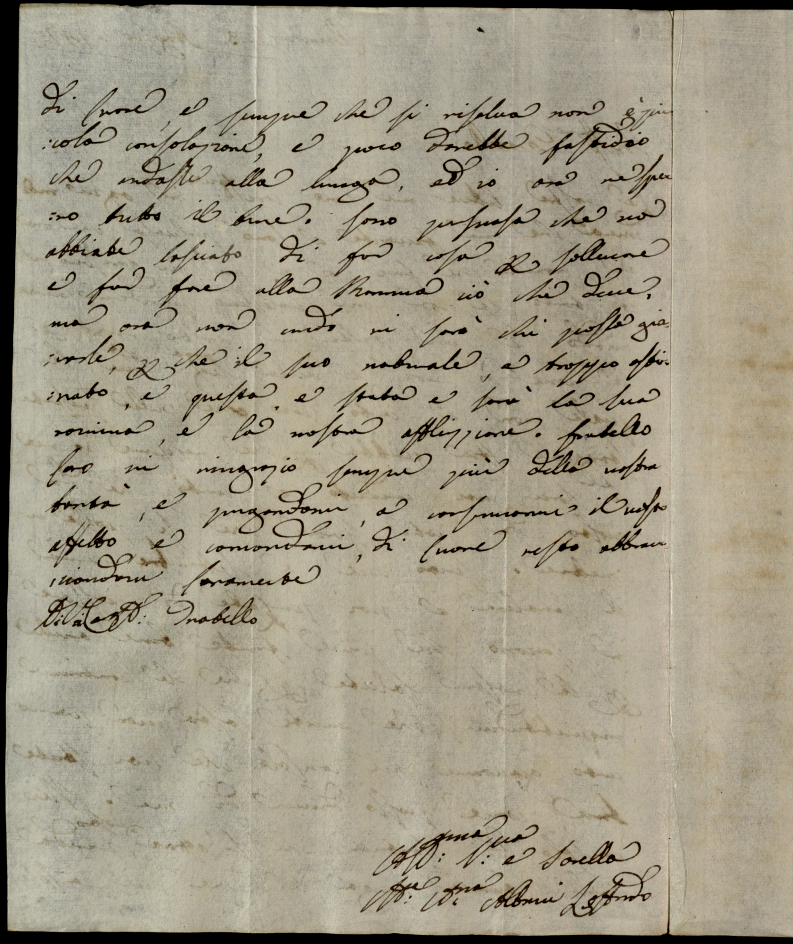 di Cuore, e sempre che si risolva non è pic
:cola consolazione, e poco darebbe fastidio
che andasse alla lunga, ed io ora ne spe
:ro tutto il bene. sono persuasa che non
abbiate lasciato di far cosa per sollevare
e far fare alla Mamma ciò che deve,
ma ora non credo vi sarà chi possa gio:
:varle, per che il suo naturale, è troppo osti:
:nato, e questa è stata e sarà la sua
rovina, e la nostra afflizzione. fratello
Caro vi ringrazio sempre più della vostra
bontà, e pregandovi, a conservarmi il vostro
affetto e comandarmi, di Cuore resto abbrac
:ciandovi Caramente
fratello
e Sorella